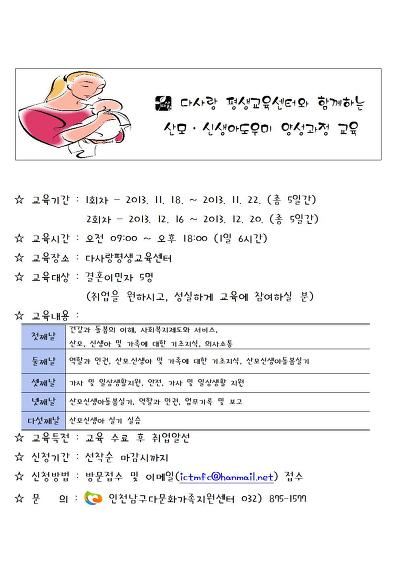 다사랑 평생교육센터와 함께하는
산모·신생아도우미 양성과정 교육
☆ 교육기간 : 1회차 - 2013. 11. 18. ~ 2013. 11. 22. (총 5일간)
2회차 - 2013. 12. 16 ~ 2013. 12. 20. (총 5일간)
☆ 교육시간 : 오전 09:00 ~ 오후 18:00 (1일 6시간)
☆ 교육장소 : 다사랑평생교육센터
☆ 교육대상 : 결혼이민자 5명
(취업을 원하시고, 성실하게 교육에 참여하실 분)
☆ 교육내용 :
첫째날 건강과 돌봄의 이해, 사회복지제도와 서비스,
산모, 신생아 및 가족에 대한 기초지식, 의사소통
둘째날 역할과 인권, 산모신생아 및 가족에 대한 기초지식, 산모신생아돌봄실기
셋째날 가사 및 일상생활지원, 안전, 가사 및 일상생활 지원
넷째날 산모신생아돌봄실기, 역할과 인권, 업무기록 및 보고
다섯째날 산모신생아 실기 실습
☆ 교육특전 : 교육 수료 후 취업알선
☆ 신청기간 : 선착순 마감시까지
☆ 신청방법 : 방문접수 및 이메일(ictmfc@hanmail.net) 접수
☆ 문 의 : 인천남구다문화가족지원센터 032) 875-1577